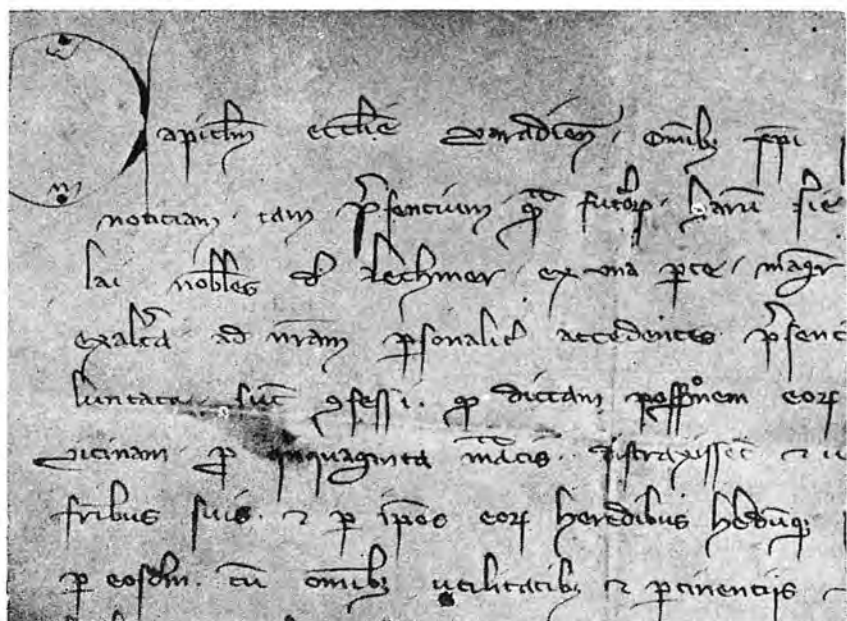 Capitlm ecclie Waradien omibz xpi
noticiam tam psencium qm futorum harum sie
lai nobles de Kechmer ex una pte magr
exalta ad nram psonalit accedentes psent
luntate sut confessi quod dictam possionem eorum
vicinam pro quinquaginta marcis distraxisset et
fribus suis et p ipos eorum heredibus hedumque
p eosdm cum omibz utilitatibz et ptinentijs